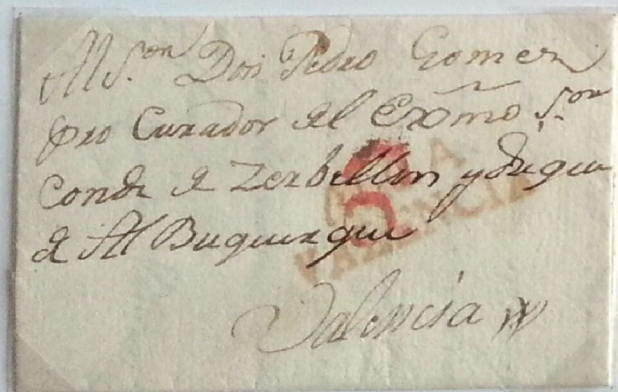 Al S.on Don Pedro Gomez
pro Curador del Exmo S.or
Conde de Zerbellon y duque
de Al Buquerque
5
A
VALENCIA
Valencia